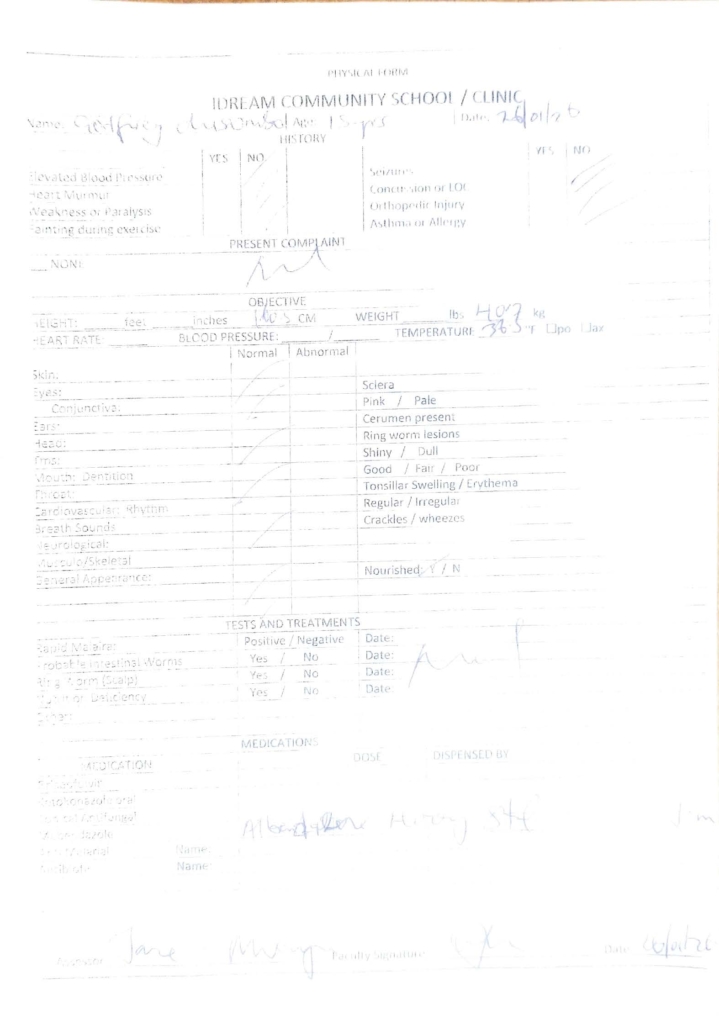 PHYSICAL FORM
IDREAM COMMUNITY SCHOOL / CLINIC
Name: Godfrey Age: 15yrs Date: 26/01/26
HISTORY
YES NO YES NO
Elevated Blood Pressure Seizures
Heart Murmur Concussion or LOC
Weakness or Paralysis Orthopedic Injury
Fainting during exercise Asthma or Allergy
PRESENT COMPLAINT
NONE
OBJECTIVE
HEIGHT: feet inches CM WEIGHT lbs 40.7 kg
HEART RATE: BLOOD PRESSURE: / TEMPERATURE 36.5 °F po ax
Normal Abnormal
Skin:
Eyes: Sclera
Conjunctiva: Pink / Pale
Ears: Cerumen present
Head: Ring worm lesions
Shiny / Dull
Mouth: Dentition Good / Fair / Poor
Throat: Tonsillar Swelling / Erythema
Cardiovascular: Rhythm Regular / Irregular
Breath Sounds Crackles / wheezes
Neurological:
Musculo/Skeletal
General Appearance: Nourished: Y / N
TESTS AND TREATMENTS
Rapid Malaria: Positive / Negative Date:
Probable Intestinal Worms Yes / No Date:
Ring Worm (Scalp) Yes / No Date:
Deficiency Yes / No Date:
Other:
MEDICATIONS
MEDICATION DOSE DISPENSED BY
Name:
Name:
Jane Faculty Signature Date 26/01/26